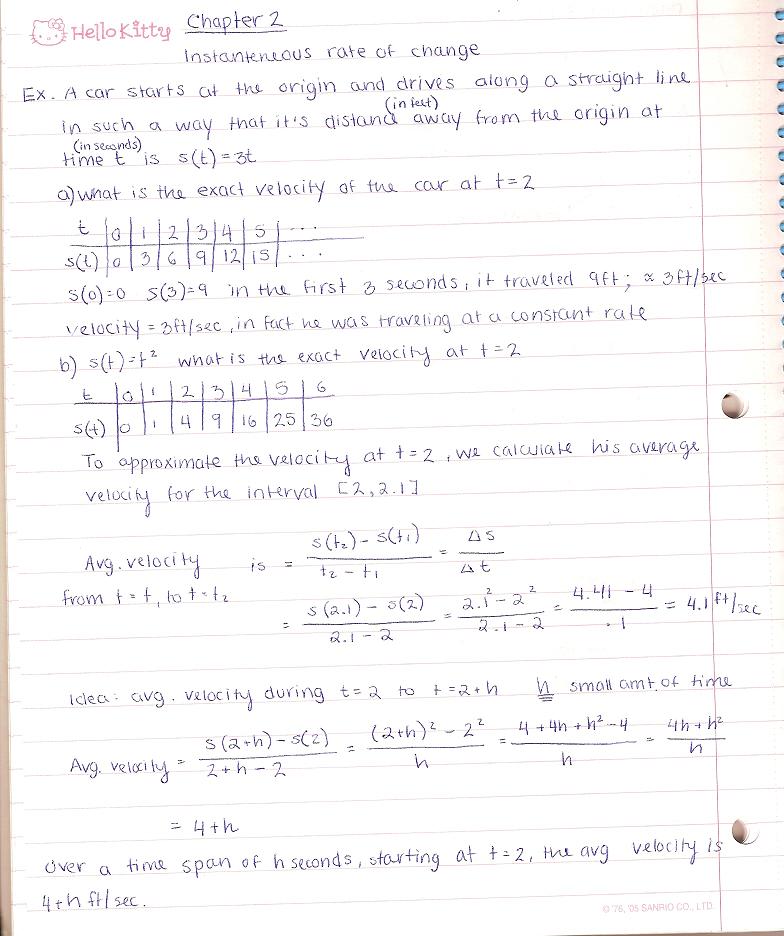 Hello Kitty Chapter 2
Instanteneous rate of change
Ex. A car starts at the origin and drives along a straight line
(in feet)
in such a way that it's distance away from the origin at
(in seconds)
time t is s(t)=3t
a) what is the exact velocity of the car at t=2
t | 0 | 1 | 2 | 3 | 4 | 5 | ...
s(t) | 0 | 3 | 6 | 9 | 12 | 15 | ...
s(0)=0 s(3)=9 in the first 3 seconds, it traveled 9ft; ≈ 3ft/sec
velocity = 3ft/sec, in fact he was traveling at a constant rate
b) s(t)=t² what is the exact velocity at t=2
t | 0 | 1 | 2 | 3 | 4 | 5 | 6
s(t) | 0 | 1 | 4 | 9 | 16 | 25 | 36
To approximate the velocity at t=2, we calculate his average
velocity for the interval [2, 2.1]
Avg. velocity is = (s(t₂) - s(t₁))/(t₂ - t₁) = Δs/Δt
from t=t₁ to t=t₂
= (s(2.1) - s(2))/(2.1 - 2) = (2.1² - 2²)/(2.1 - 2) = (4.41 - 4)/.1 = 4.1 ft/sec
Idea: avg. velocity during t=2 to t=2+h h small amt. of time
Avg. velocity = (s(2+h) - s(2))/(2+h-2) = ((2+h)² - 2²)/h = (4+4h+h²-4)/h = (4h+h²)/h
= 4+h
Over a time span of h seconds, starting at t=2, the avg velocity is
4+h ft/sec.
© '76, '05 SANRIO CO., LTD.